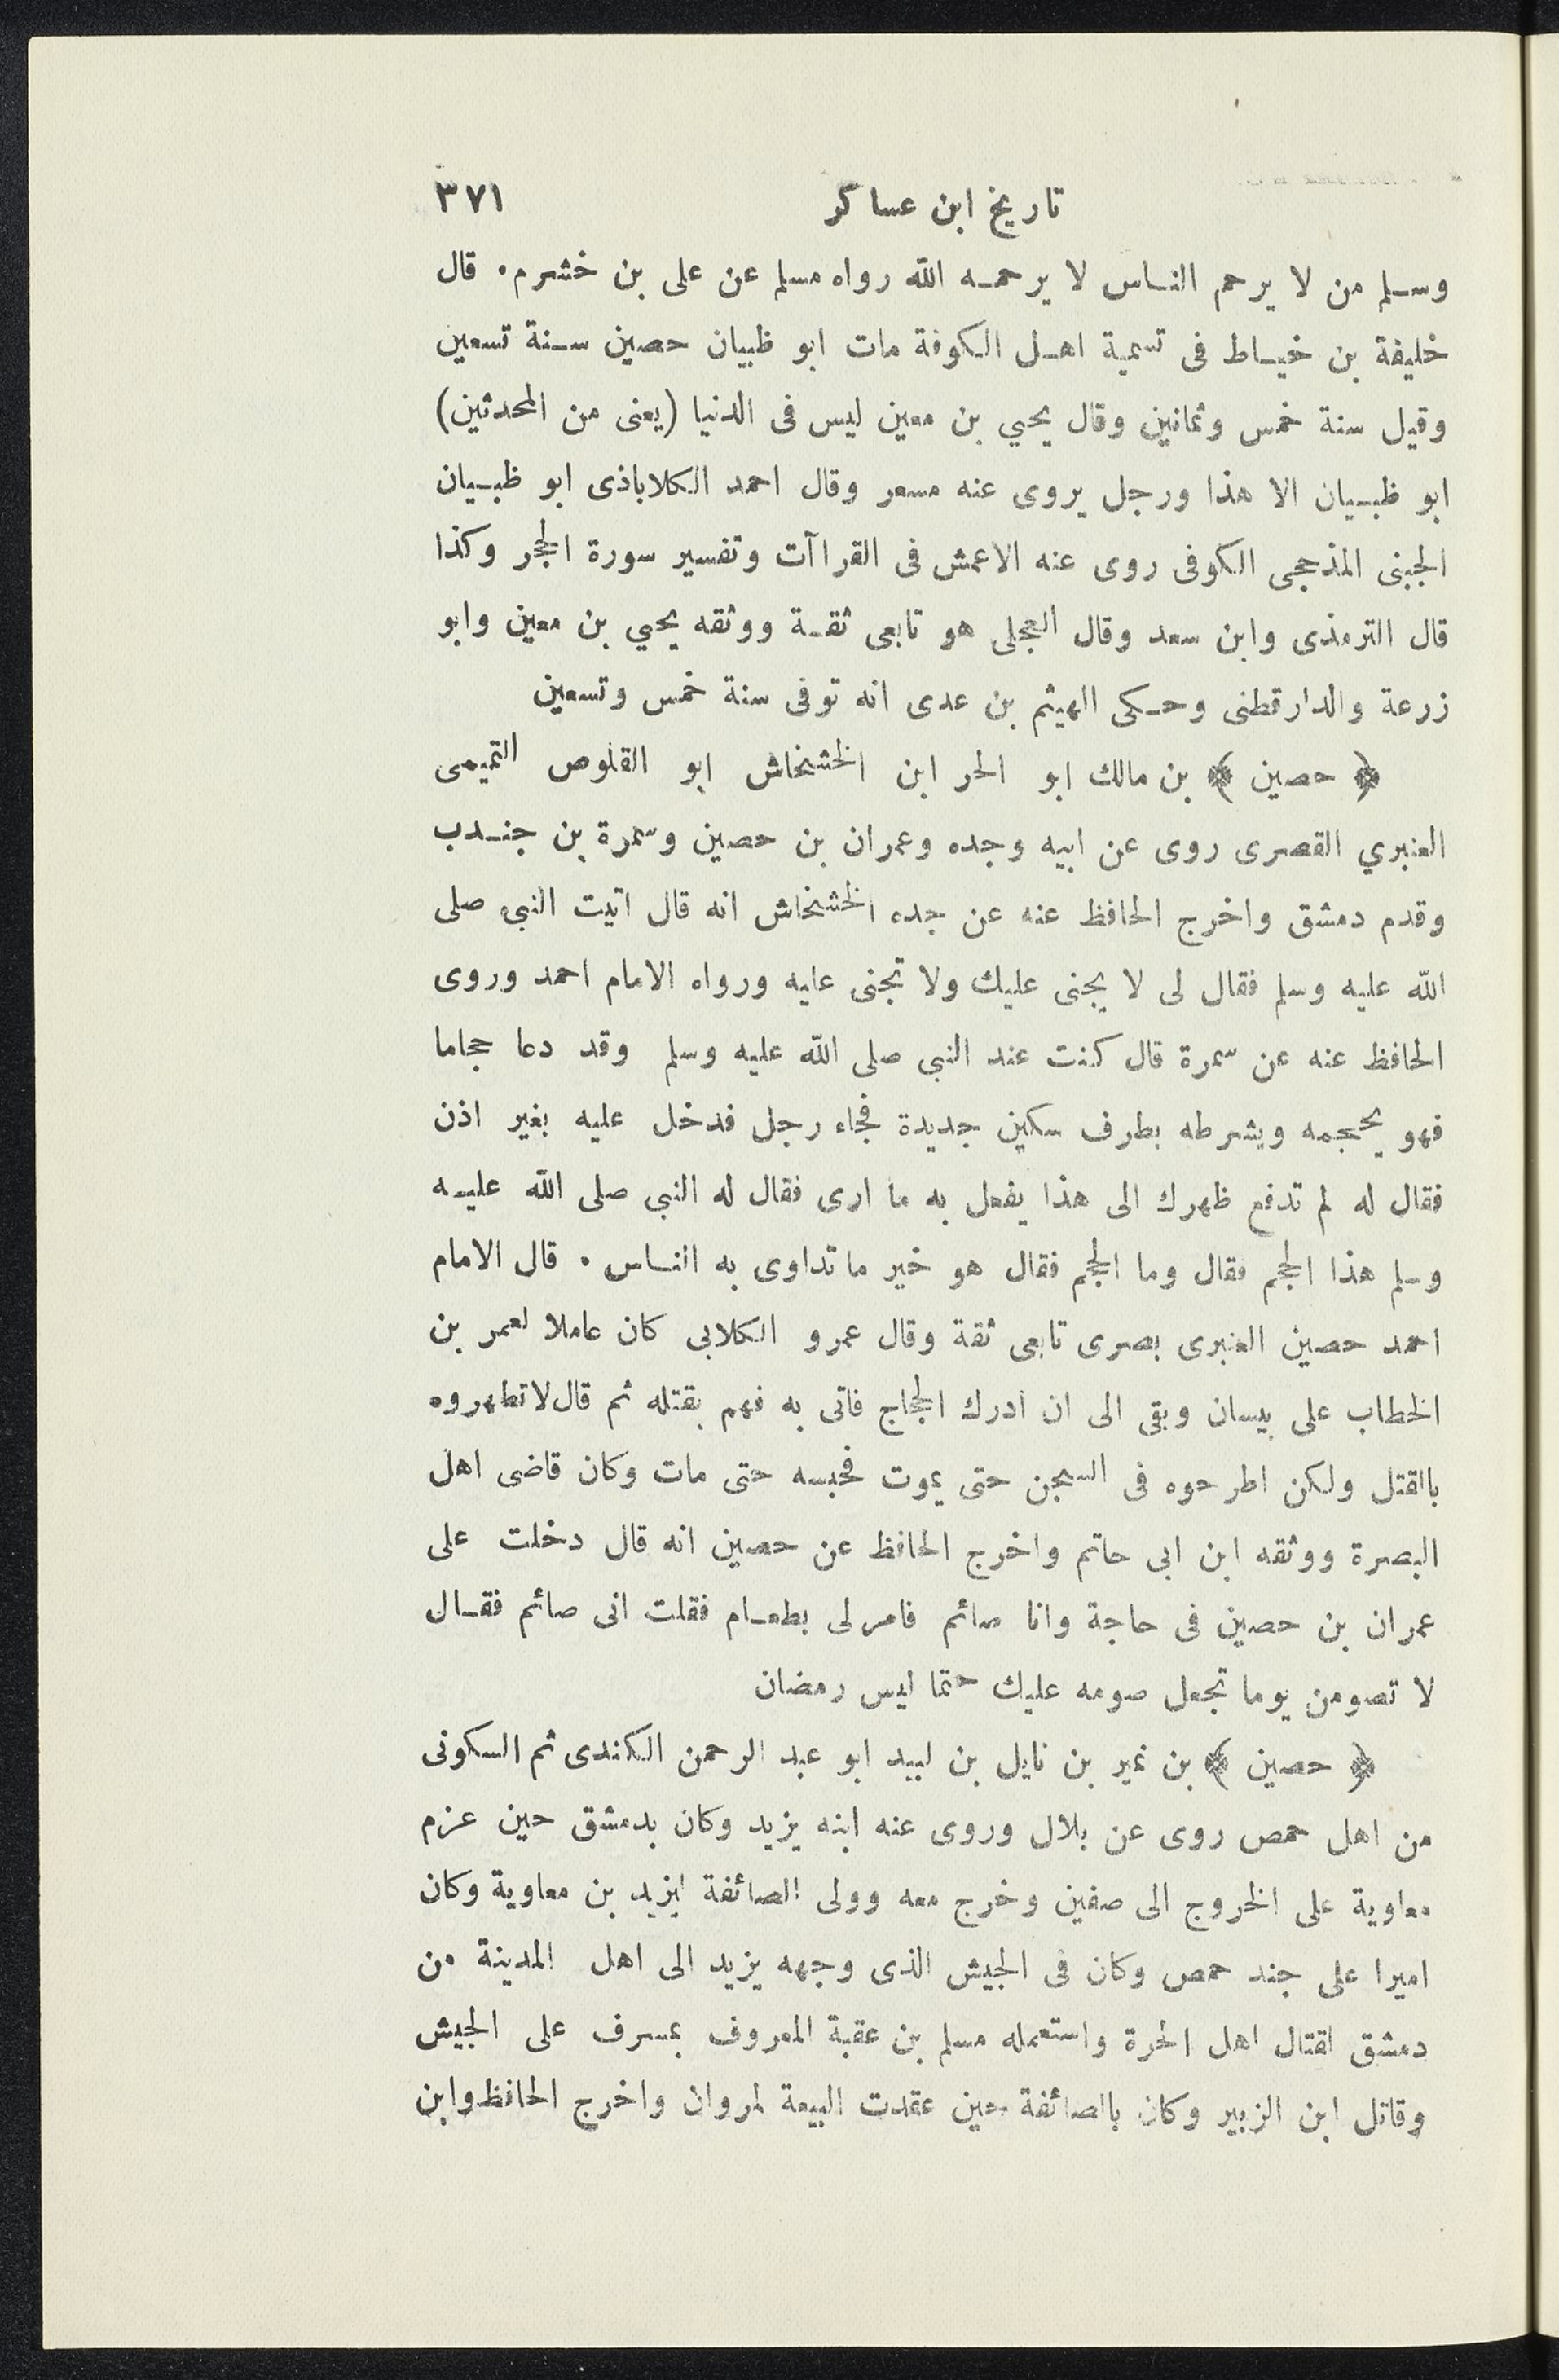 تاريخ ابن عساكر ٣٧١
وسلم من لا يرحم الناس لا يرحمه الله رواه مسلم عن على بن خشرم. قال
خليفة بن خياط فى تسمية اهل الكوفة مات ابو ظبيان حصين سنة تسعين
وقيل سنة خمس وثمانين وقال يحيي بن معين ليس فى الدنيا (يعنى من المحدثين)
ابو ظبيان الا هذا ورجل يروى عنه مسعر وقال احمد الكلاباذى ابو ظبيان
الجبنى المذحجى الكوفى روى عنه الاعمش فى القراآت وتفسير سورة الحجر وكذا
قال الترمذى وابن سعد وقال العجلى هو تابعى ثقة ووثقه يحيي بن معين وابو
زرعة والدارقطنى وحكى الهيثم بن عدى انه توفى سنة خمس وتسعين
﴿ حصين ﴾ بن مالك ابو الحر ابن الخشخاش ابو القلوص التميمى
العنبري القصرى روى عن ابيه وجده وعمران بن حصين وسمرة بن جندب
وقدم دمشق واخرج الحافظ عنه عن جده الخشخاش انه قال اتيت النبي صلى
الله عليه وسلم فقال لى لا يجنى عليك ولا تجنى عليه ورواه الامام احمد وروى
الحافظ عنه عن سمرة قال كنت عند النبي صلى الله عليه وسلم وقد دعا حجاما
فهو يحجمه ويشرطه بطرف سكين جديدة فجاء رجل فدخل عليه بغير اذن
فقال له لم تدفع ظهرك الى هذا يفعل به ما ارى فقال له النبي صلى الله عليه
وسلم هذا الحجم فقال وما الحجم فقال هو خير ما تداوى به الناس. قال الامام
احمد حصين العنبرى بصرى تابعى ثقة وقال عمرو الكلابى كان عاملا لعمر بن
الخطاب على بيسان وبقى الى ان ادرك الحجاج فاتى به فهم بقتله ثم قال لا تطهروه
بالقتل ولكن اطرحوه فى السجن حتى يموت فحبسه حتى مات وكان قاضى اهل
البصرة ووثقه ابن ابى حاتم واخرج الحافظ عن حصين انه قال دخلت على
عمران بن حصين فى حاجة وانا صائم فامر لى بطعام فقلت انى صائم فقال
لا تصومن يوما تجعل صومه عليك حتما ليس رمضان
﴿ حصين ﴾ بن نمير بن نايل بن لبيد ابو عبد الرحمن الكندى ثم السكونى
من اهل حمص روى عن بلال وروى عنه ابنه يزيد وكان بدمشق حين عزم
معاوية على الخروج الى صفين وخرج معه وولى الصائفة ليزيد بن معاوية وكان
اميرا على جند حمص وكان فى الجيش الذى وجهه يزيد الى اهل المدينة من
دمشق لقتال اهل الحرة واستعمله مسلم بن عقبة المعروف بمسرف على الجيش
وقاتل ابن الزبير وكان بالصائفة حين عقدت البيعة لمروان واخرج الحافظ وابن